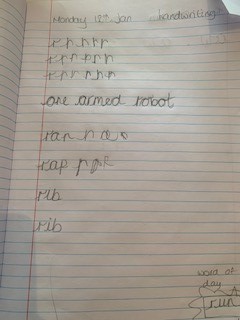 Monday 18th Jan handwriting
r r r r r
r r r r r r
r r r r r r
one armed robot
ran r a
rap r a
rib
rib
word of
day
run